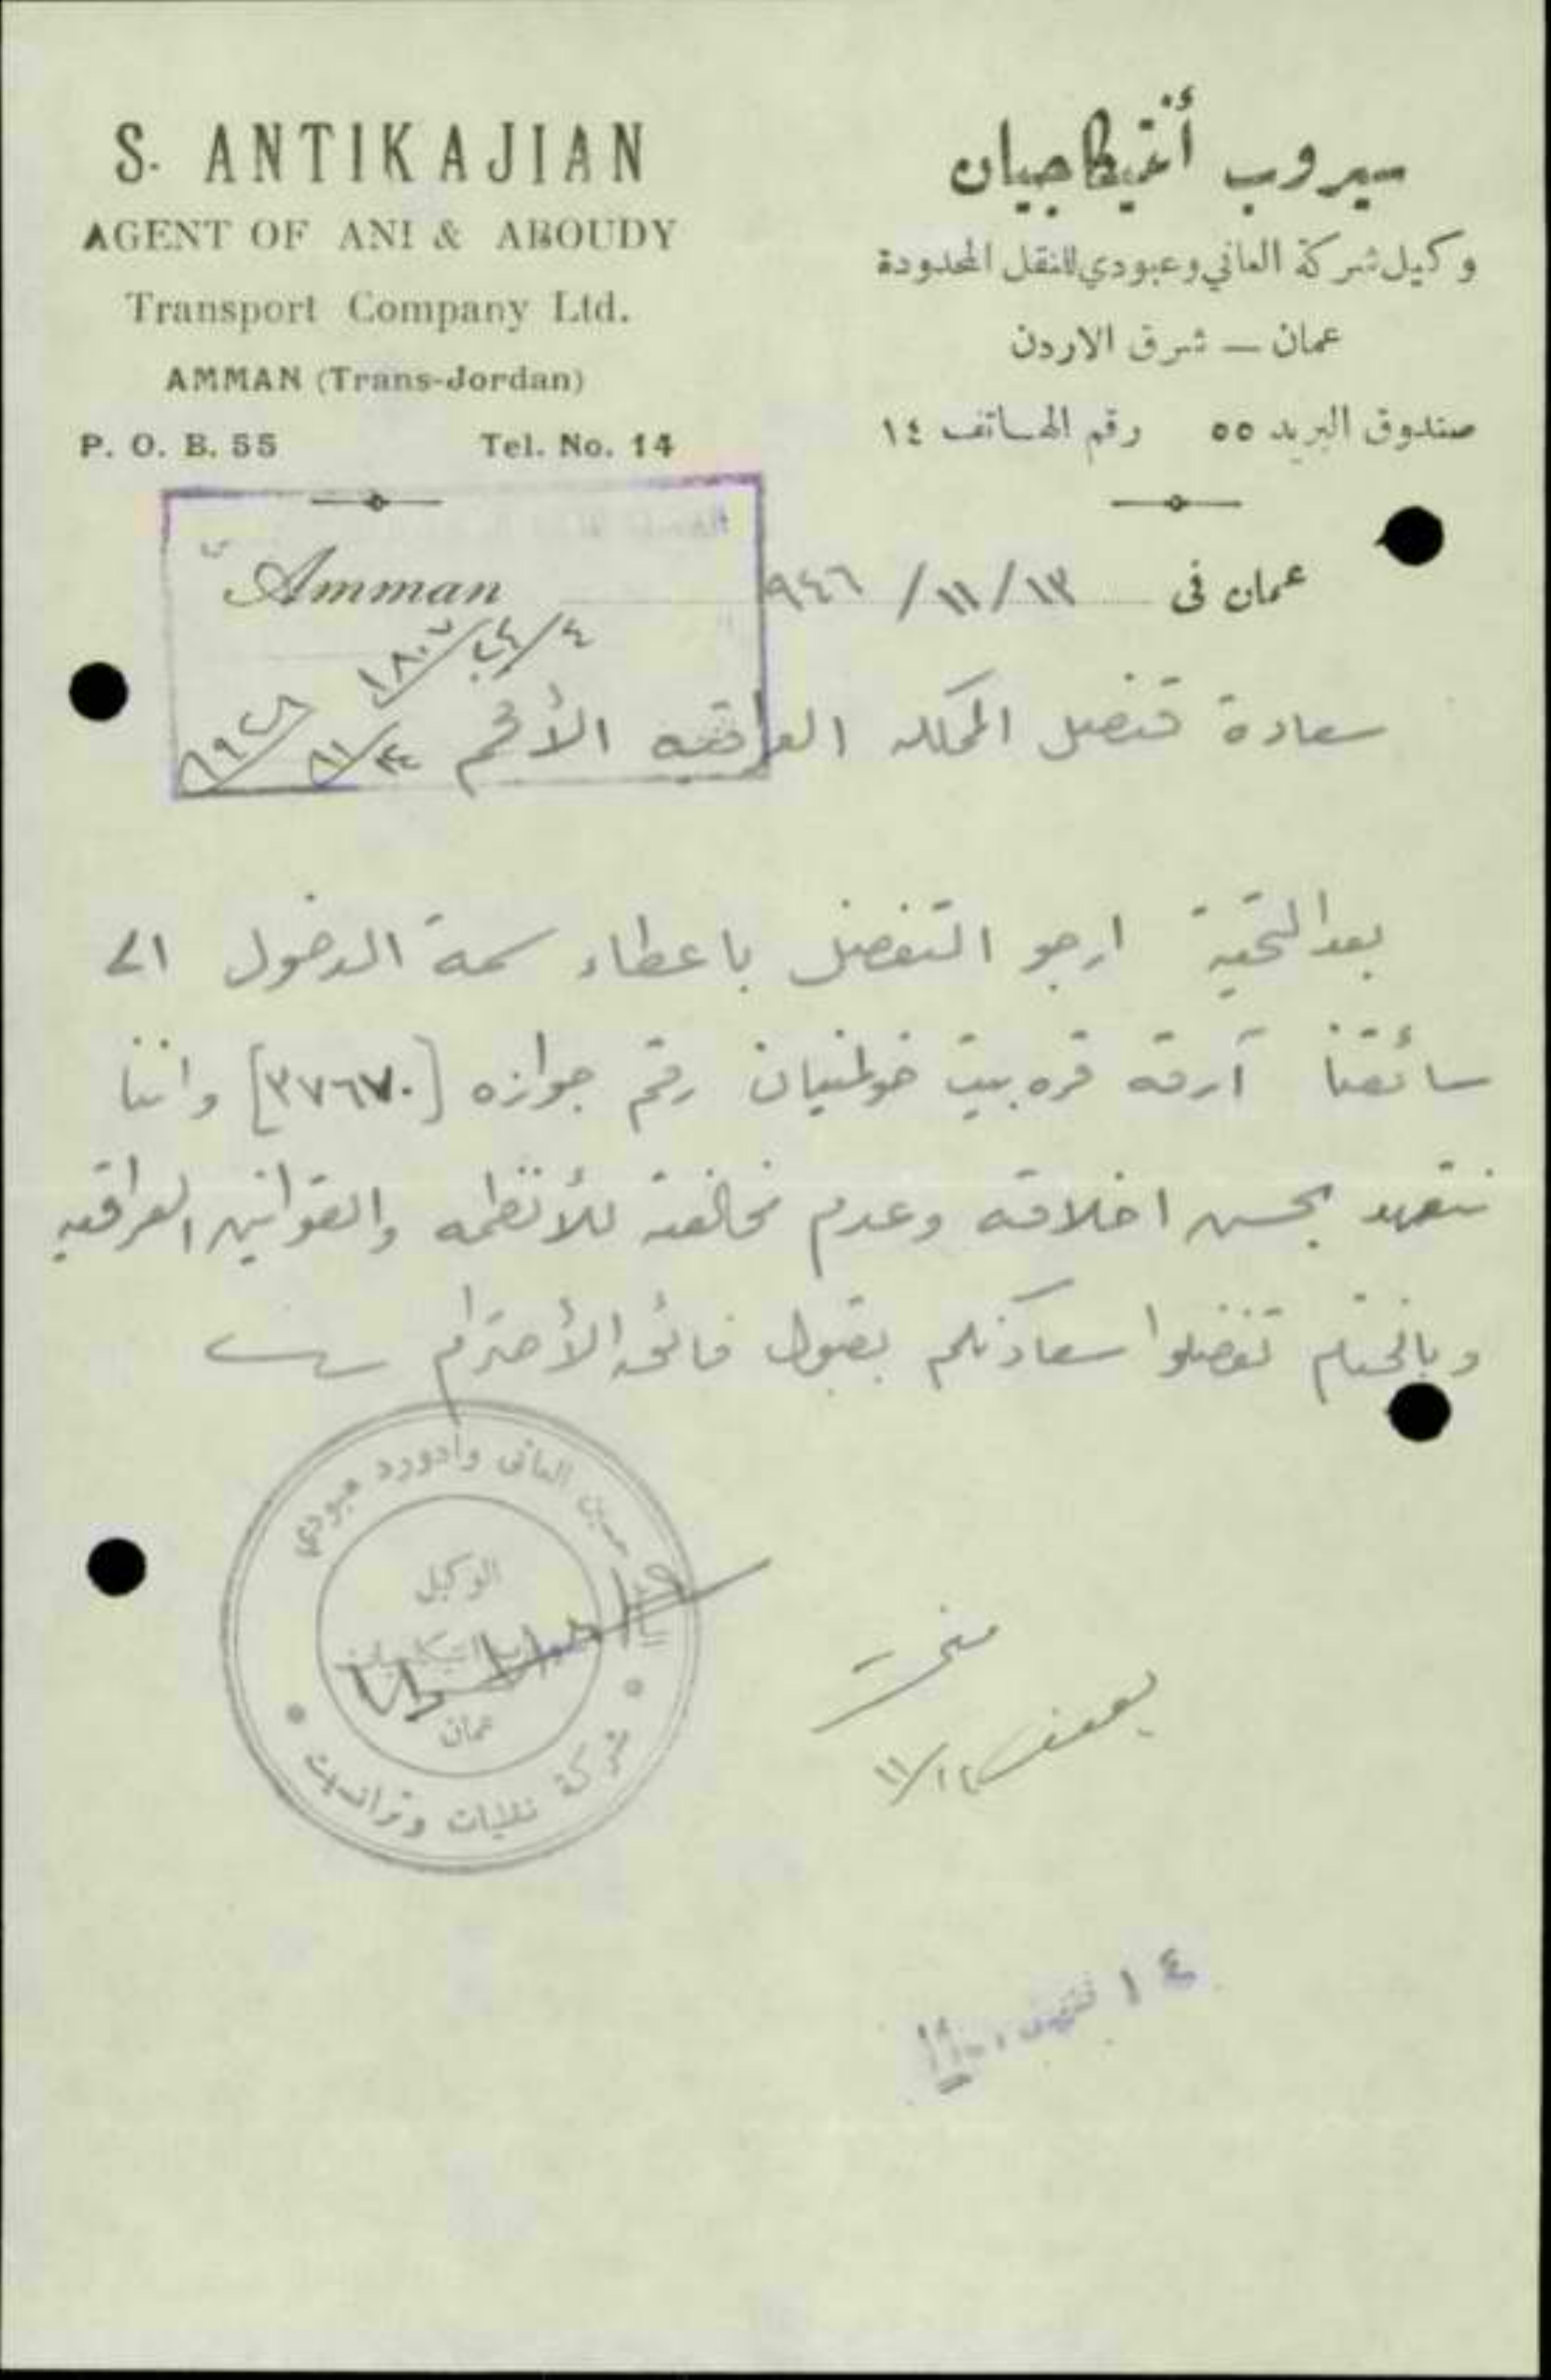 S. ANTIKAJIAN
AGENT OF ANI & ABOUDY
Transport Company Ltd.
AMMAN (Trans-Jordan)
P. O. B. 55 Tel. No. 14
سيروب أنتيكاجيان
وكيل شركة العاني وعبودي للنقل المحدودة
عمان — شرق الاردن
صندوق البريد ٥٥ رقم الهاتف ١٤
Amman
عمان فى ١٣/١١/٩٤٦
سعادة قنصل المملكه العراقيه الأفخم
بعد التحية ارجو التفضل باعطاء سمة الدخول الى
سائقنا آرقه قره بيت رقم جوازه [٣٧٦٧٠] واننا
نتعهد بحسن اخلاقه وعدم مخالفته للأنظمه والقوانين العراقيه
وبالختام تفضلوا سعادتكم بقبول فائق الأحترام
حسين العانى وأدورد عبودي
الوكيل
عمان
شركة نقليات وترانسيت
منحت